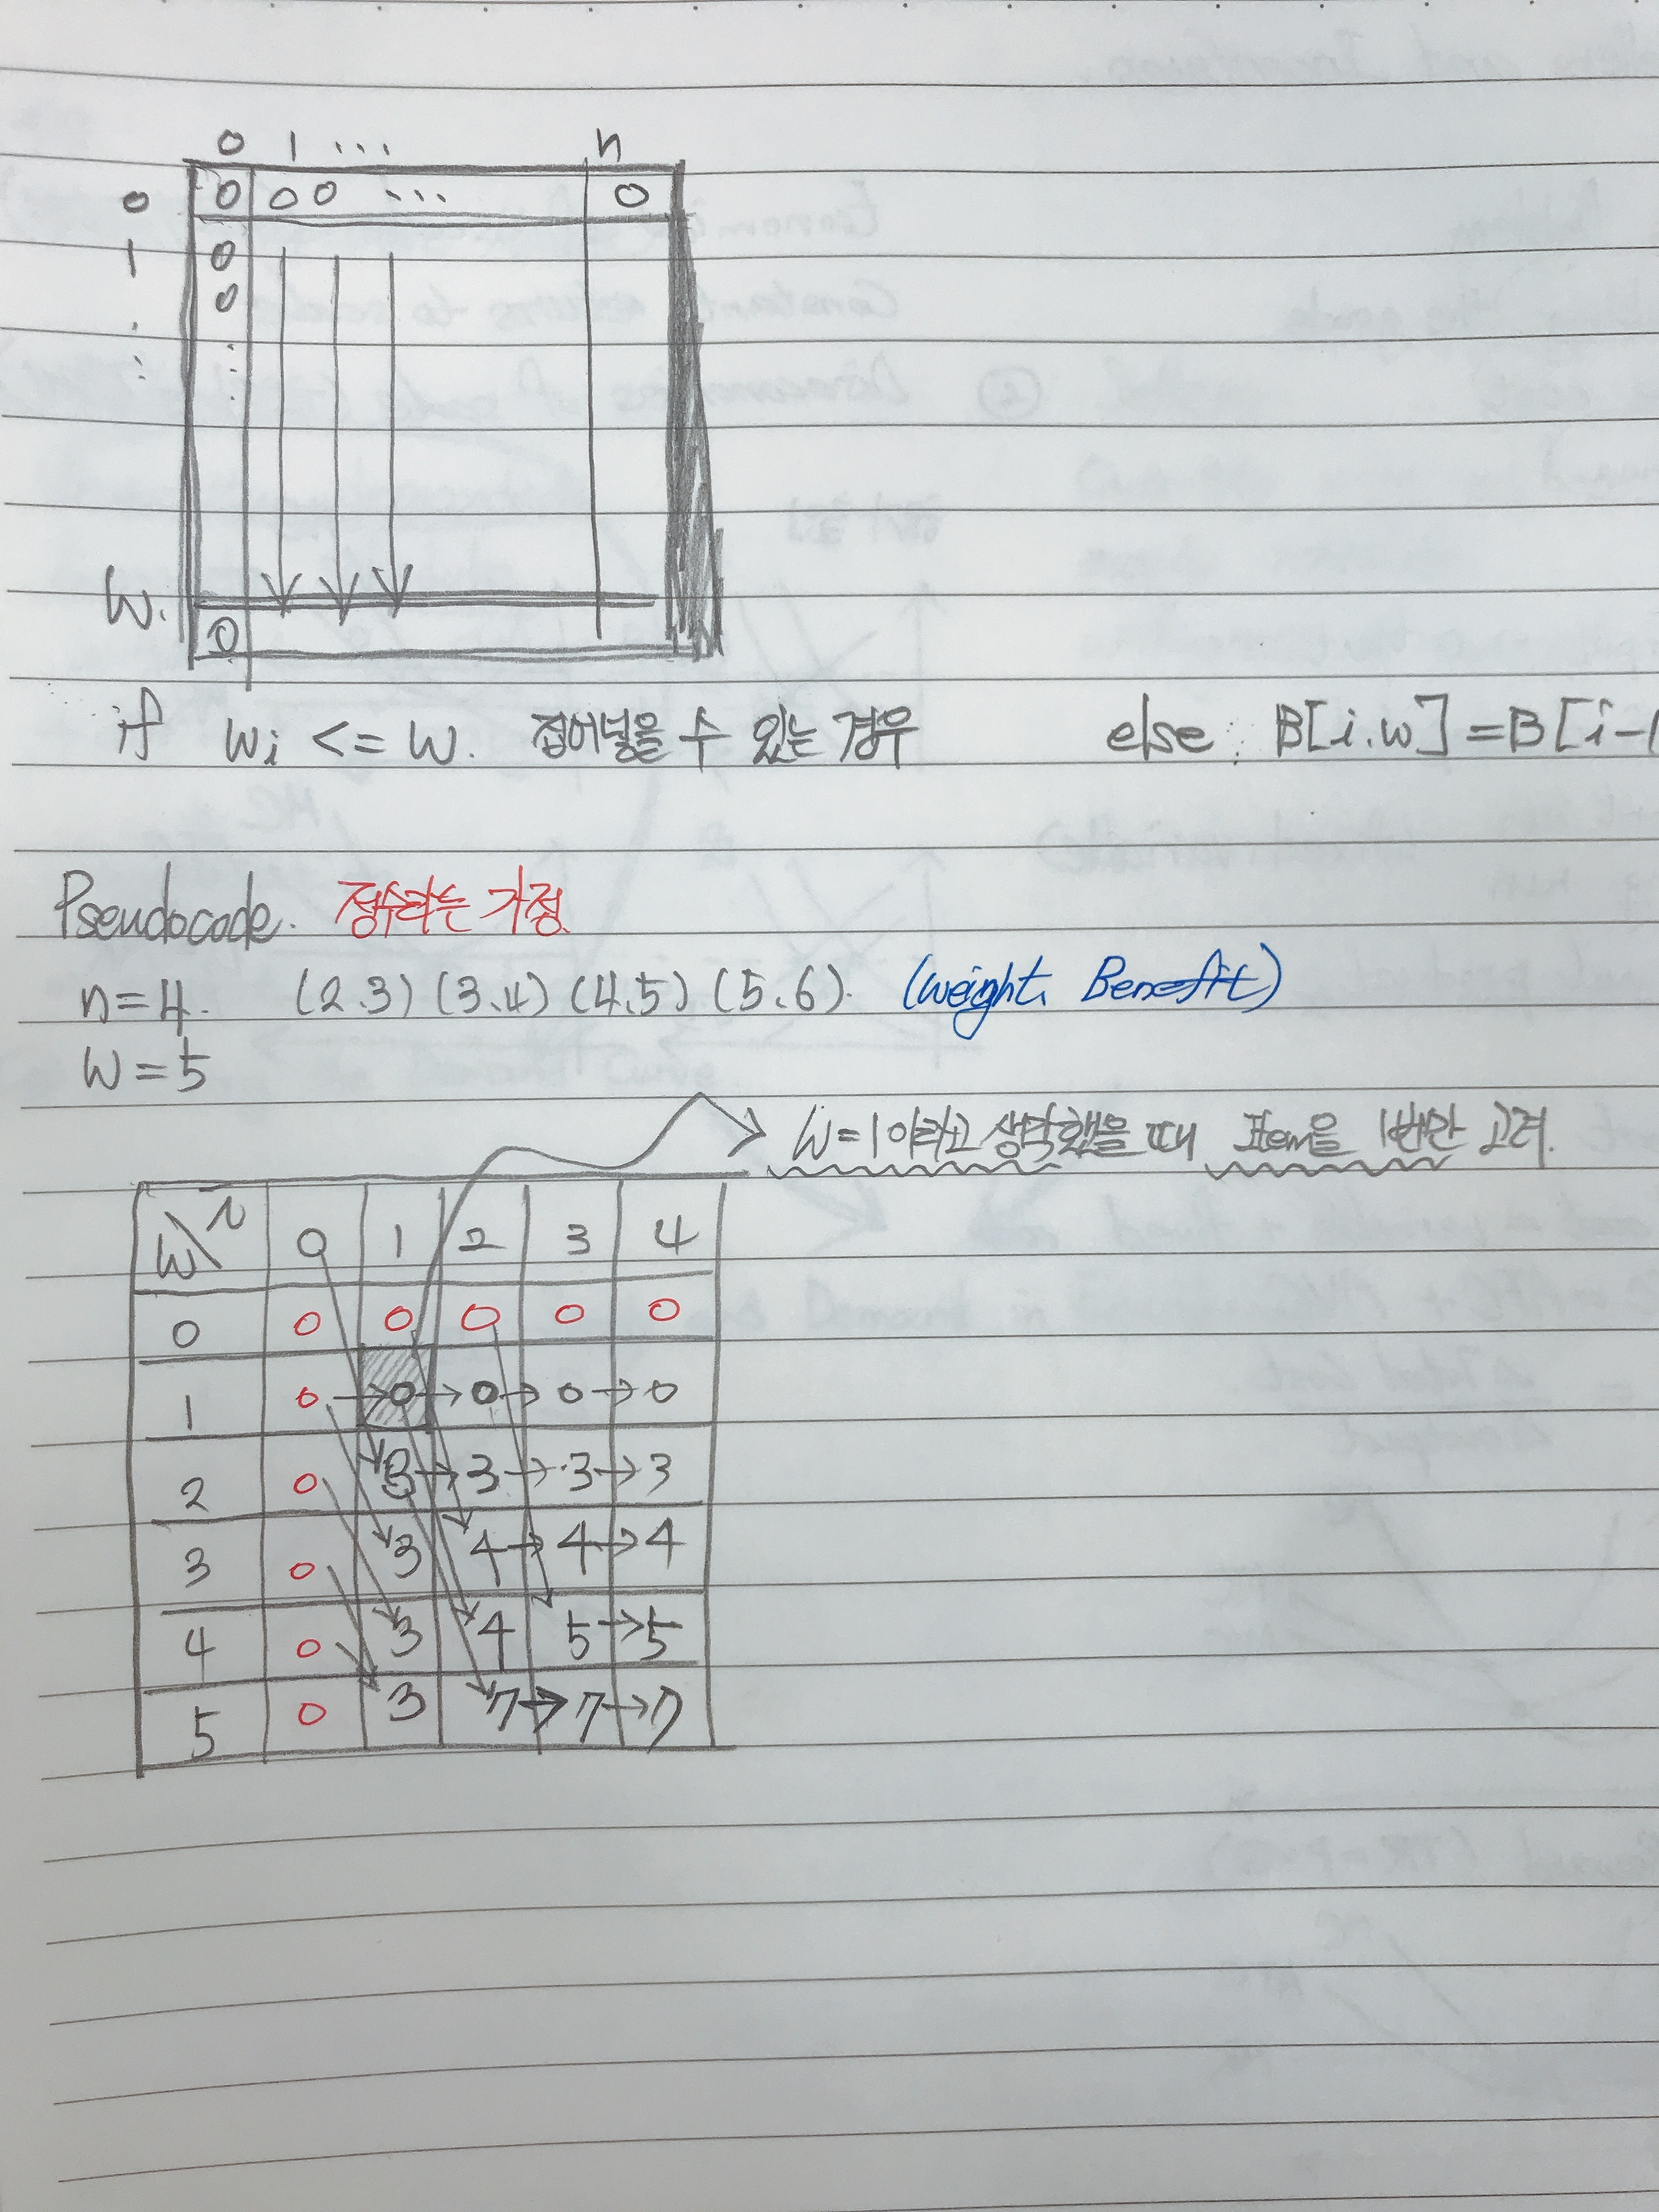 0 1 ... n
0 0 0 0 ... 0
1 0
0
W. 0
if wi <= w. 집어넣을 수 있는 경우 else: B[i.w] = B[i-1
Pseudocode. 정수라는 가정.
n=4. (2.3) (3.4) (4.5) (5.6). (weight, Benefit)
W=5
W=1이라고 생각했을 때 Item을 1번만 고려.
W\i 0 1 2 3 4
0 0 0 0 0 0
1 0→0→0→0→0
2 0 3→3→3→3
3 0 3 4→4→4
4 0 3 4 5→5
5 0 3 7→7→7